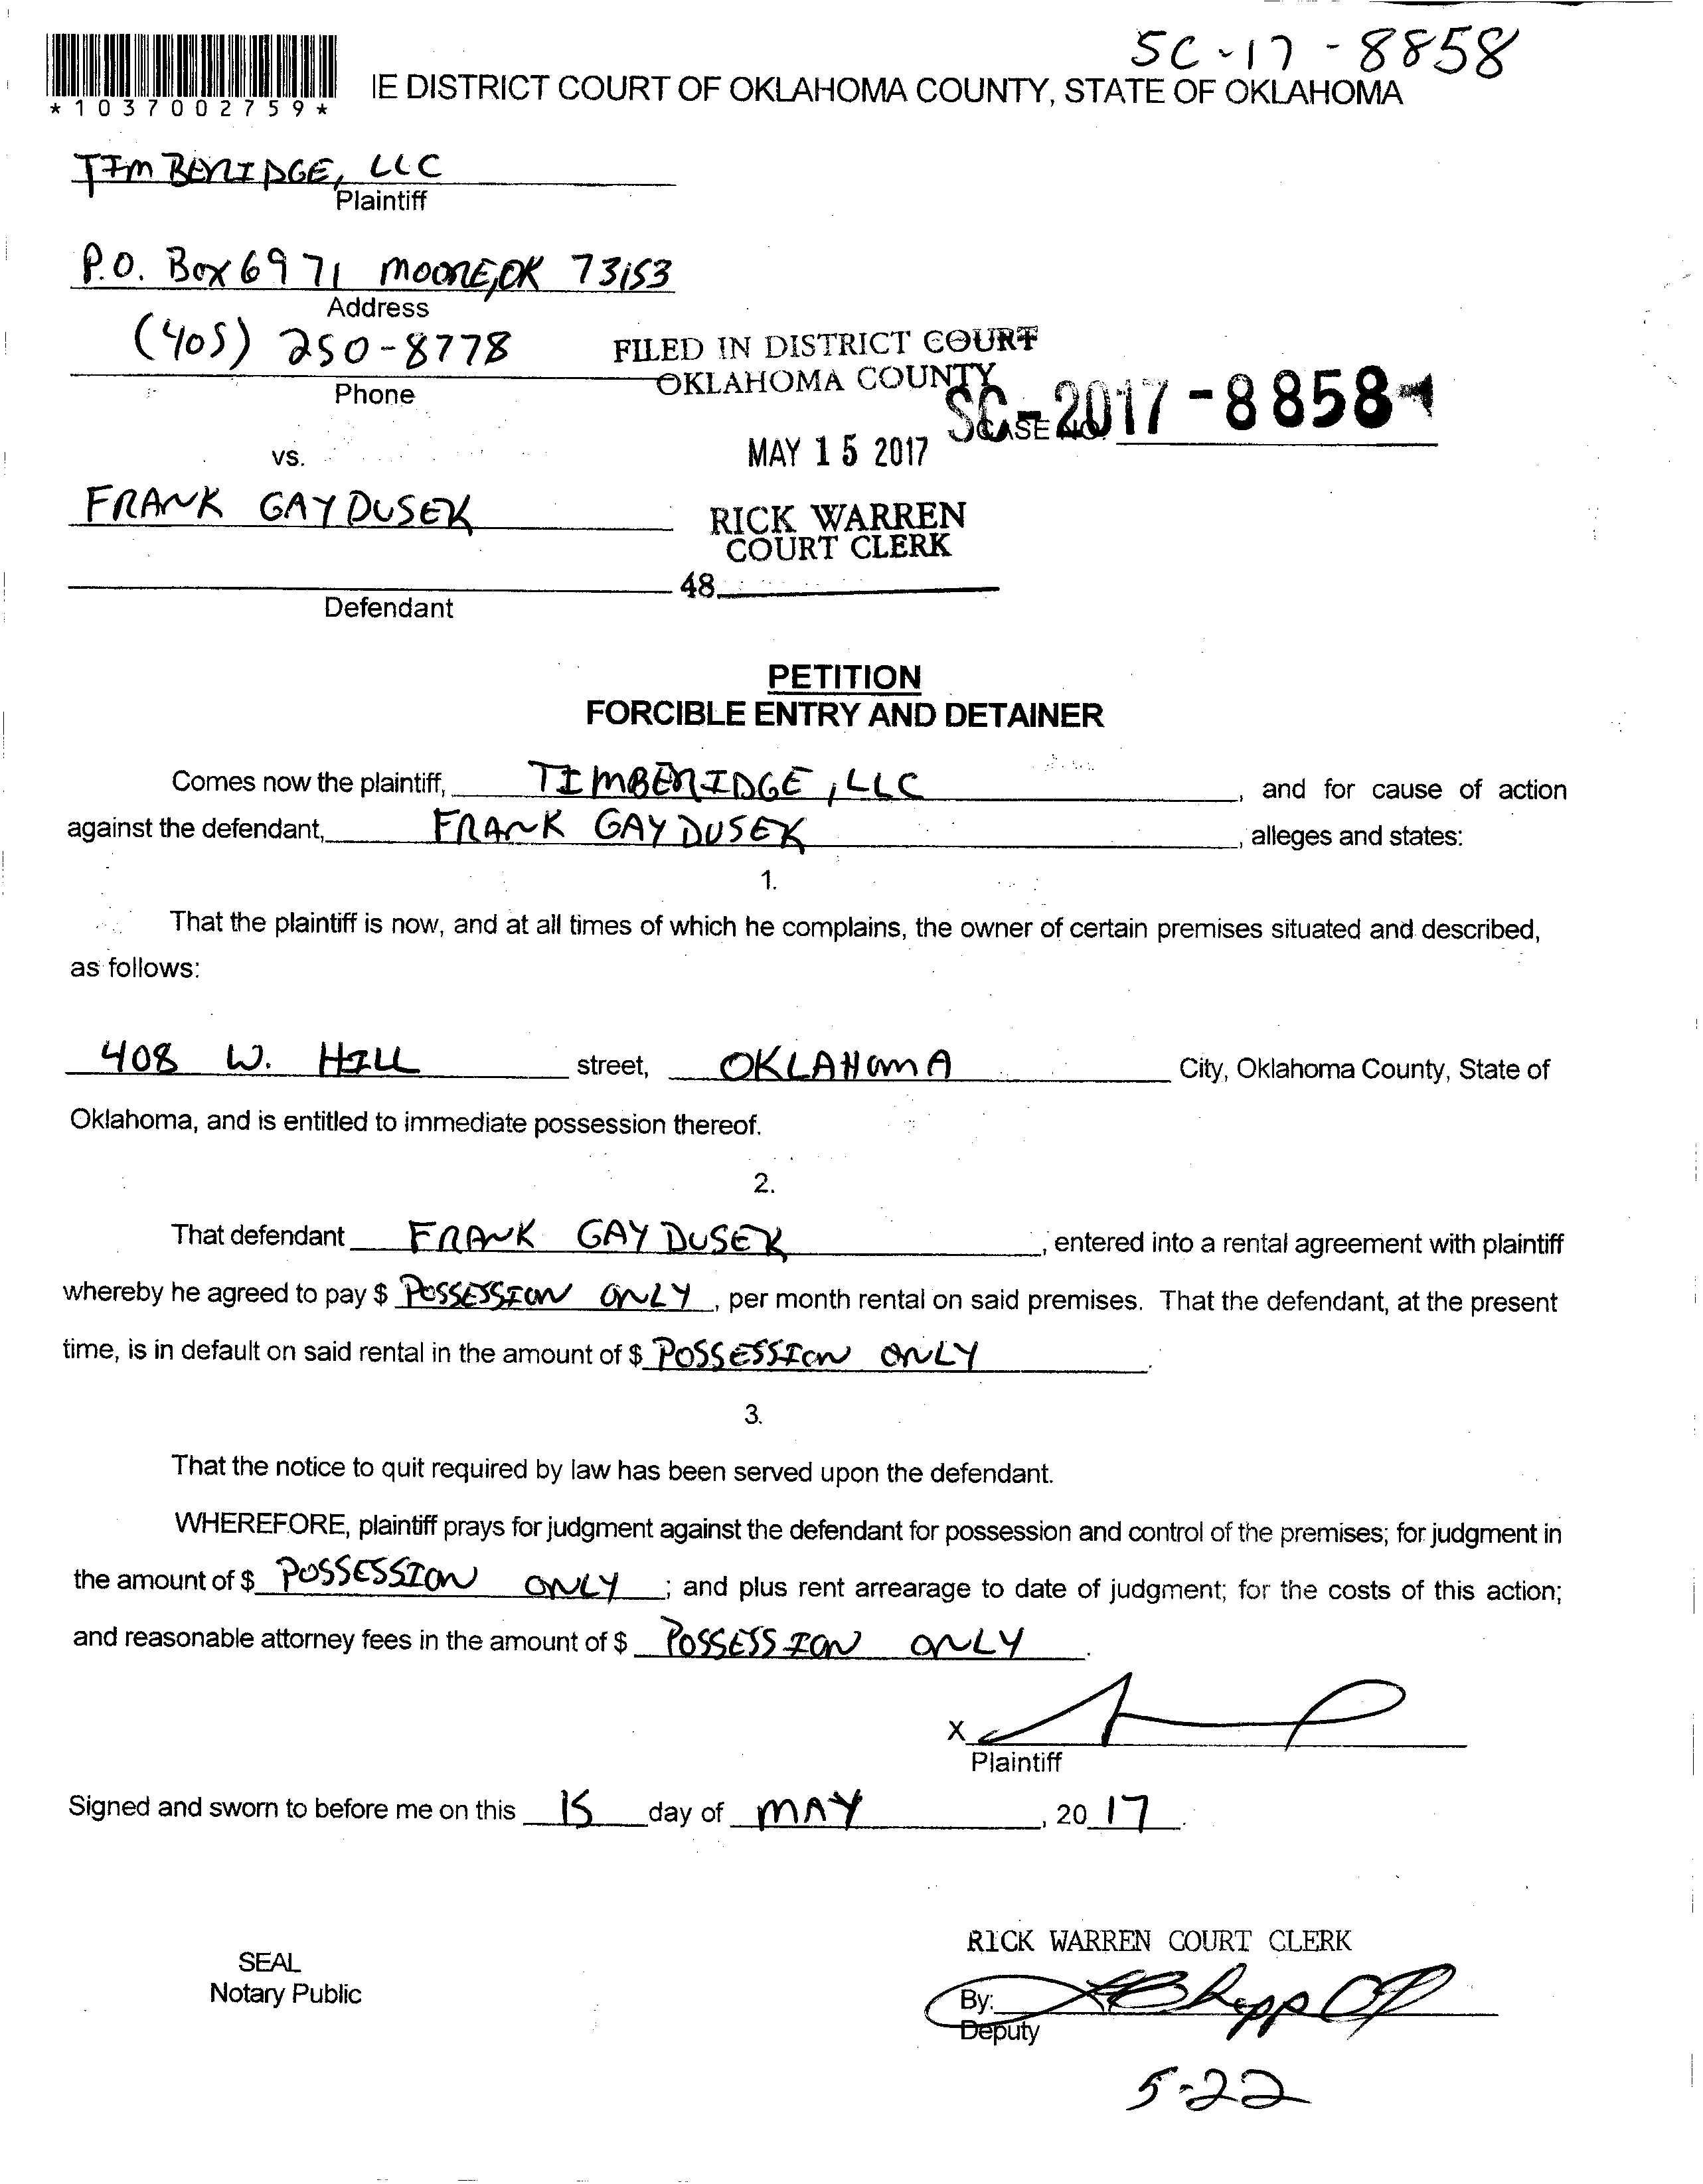 SC-17-8858
*1037002759*
IE DISTRICT COURT OF OKLAHOMA COUNTY, STATE OF OKLAHOMA
TIMBERIDGE, LLC
Plaintiff
P.O. Box 6971 MOORE, OK 73153
Address
(405) 250-8778
Phone
FILED IN DISTRICT COURT
OKLAHOMA COUNTY
SC-2017-8858
CASE NO.
MAY 15 2017
vs.
FRANK GAYDUSEK
RICK WARREN
COURT CLERK
48
Defendant
PETITION
FORCIBLE ENTRY AND DETAINER
Comes now the plaintiff, TIMBERIDGE, LLC, and for cause of action
against the defendant, FRANK GAYDUSEK, alleges and states:
1.
That the plaintiff is now, and at all times of which he complains, the owner of certain premises situated and described,
as follows:
408 W. HILL street, OKLAHOMA City, Oklahoma County, State of
Oklahoma, and is entitled to immediate possession thereof.
2.
That defendant FRANK GAYDUSEK, entered into a rental agreement with plaintiff
whereby he agreed to pay $ POSSESSION ONLY, per month rental on said premises. That the defendant, at the present
time, is in default on said rental in the amount of $ POSSESSION ONLY.
3.
That the notice to quit required by law has been served upon the defendant.
WHEREFORE, plaintiff prays for judgment against the defendant for possession and control of the premises; for judgment in
the amount of $ POSSESSION ONLY; and plus rent arrearage to date of judgment; for the costs of this action;
and reasonable attorney fees in the amount of $ POSSESSION ONLY.
X
Plaintiff
Signed and sworn to before me on this 15 day of MAY, 20 17.
RICK WARREN COURT CLERK
SEAL
Notary Public
By:
Deputy
5-22